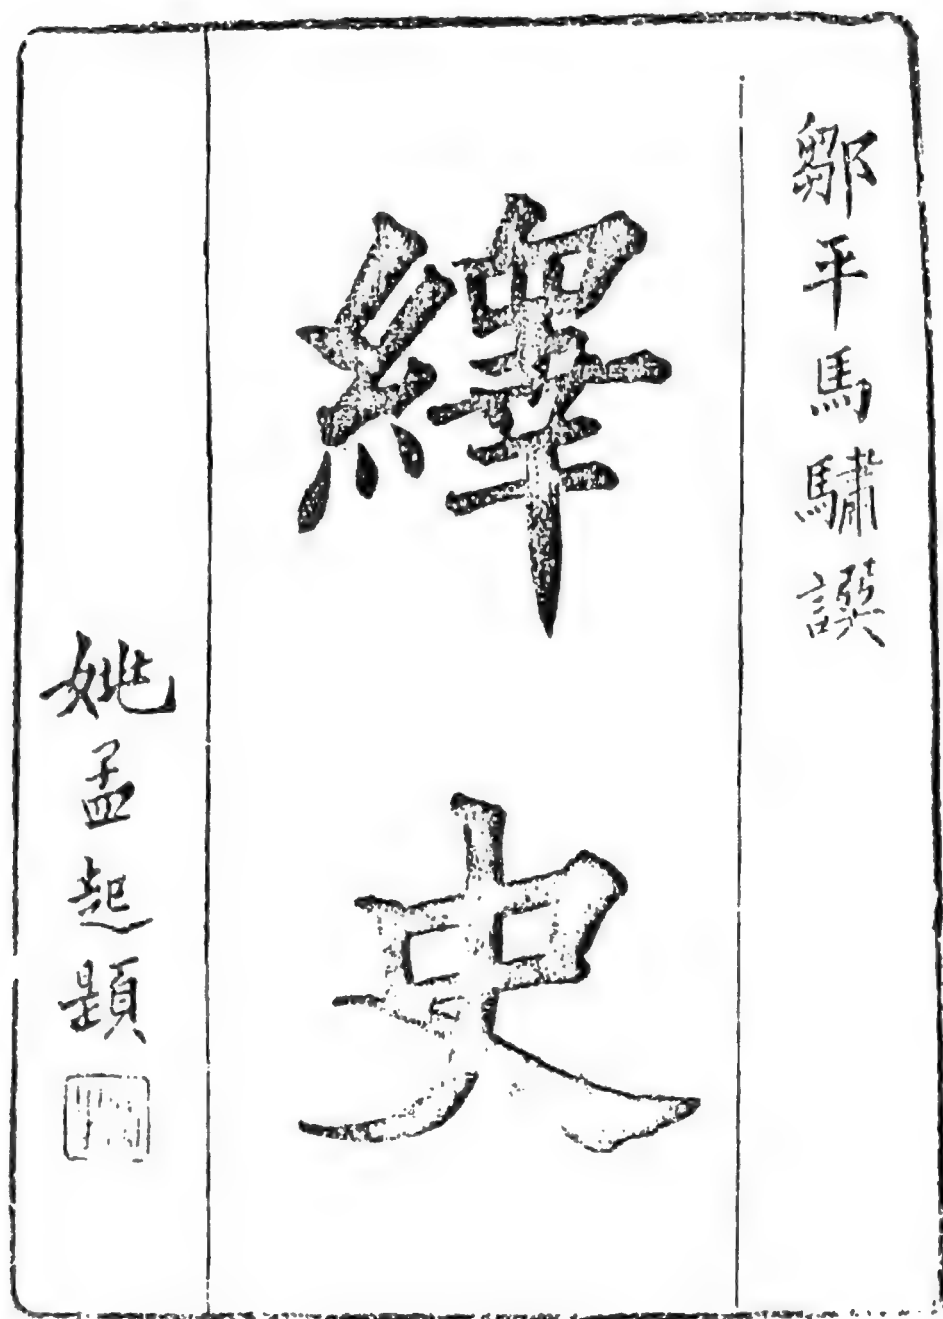 鄒平馬驌譔
繹史
姚孟起題